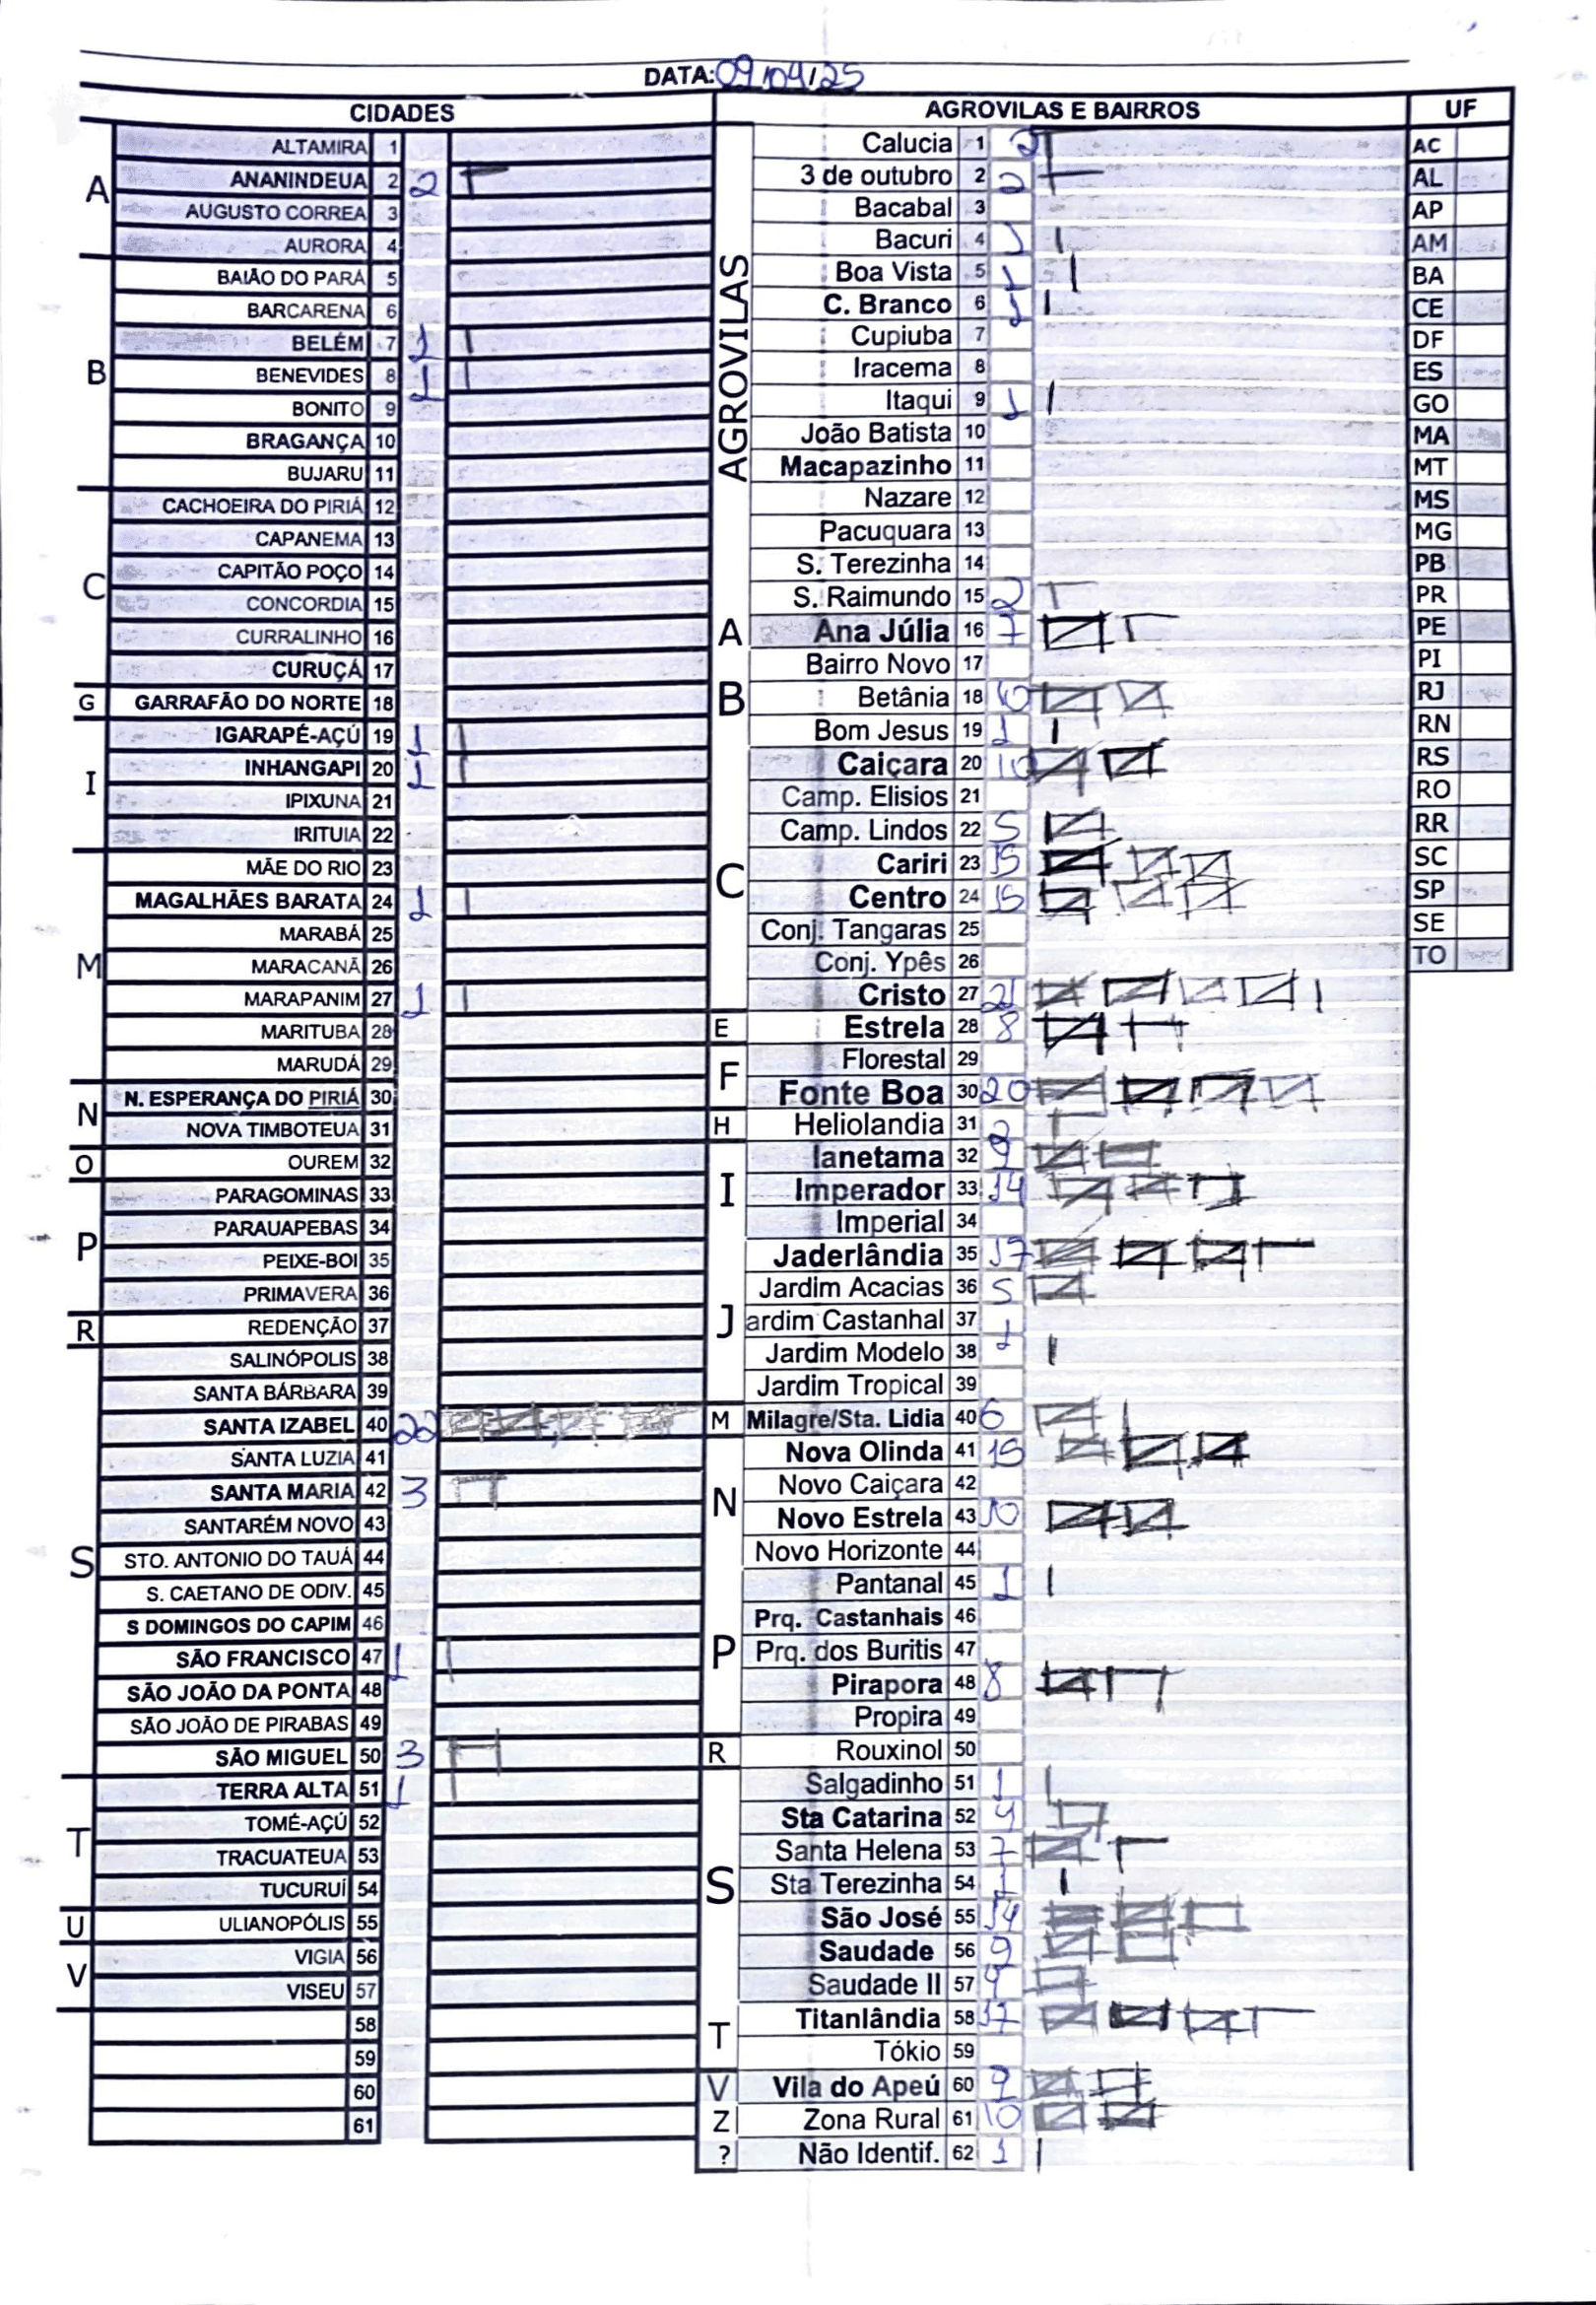 DATA: 09/04/25
CIDADES
A
ALTAMIRA 1
ANANINDEUA 2 2
AUGUSTO CORREA 3
AURORA 4
B
BAIÃO DO PARÁ 5
BARCARENA 6
BELÉM 7 1
BENEVIDES 8 1
BONITO 9
BRAGANÇA 10
BUJARU 11
C
CACHOEIRA DO PIRIÁ 12
CAPANEMA 13
CAPITÃO POÇO 14
CONCORDIA 15
CURRALINHO 16
CURUÇÁ 17
G
GARRAFÃO DO NORTE 18
I
IGARAPÉ-AÇÚ 19 1
INHANGAPI 20 1
IPIXUNA 21
IRITUIA 22
M
MÃE DO RIO 23
MAGALHÃES BARATA 24 1
MARABÁ 25
MARACANÃ 26
MARAPANIM 27 1
MARITUBA 28
MARUDÁ 29
N
N. ESPERANÇA DO PIRIÁ 30
NOVA TIMBOTEUA 31
O
OUREM 32
P
PARAGOMINAS 33
PARAUAPEBAS 34
PEIXE-BOI 35
PRIMAVERA 36
R
REDENÇÃO 37
S
SALINÓPOLIS 38
SANTA BÁRBARA 39
SANTA IZABEL 40 22
SANTA LUZIA 41
SANTA MARIA 42 3
SANTARÉM NOVO 43
STO. ANTONIO DO TAUÁ 44
S. CAETANO DE ODIV. 45
S DOMINGOS DO CAPIM 46
SÃO FRANCISCO 47 1
SÃO JOÃO DA PONTA 48
SÃO JOÃO DE PIRABAS 49
SÃO MIGUEL 50 3
T
TERRA ALTA 51 1
TOMÉ-AÇÚ 52
TRACUATEUA 53
TUCURUÍ 54
U
ULIANOPÓLIS 55
V
VIGIA 56
VISEU 57
58
59
60
61
AGROVILAS E BAIRROS
AGROVILAS
Calucia 1 2
3 de outubro 2 2
Bacabal 3
Bacuri 4 1
Boa Vista 5 1
C. Branco 6 1
Cupiuba 7
Iracema 8
Itaqui 9 1
João Batista 10
Macapazinho 11
Nazare 12
Pacuquara 13
S. Terezinha 14
S. Raimundo 15 2
A
Ana Júlia 16 7
B
Bairro Novo 17
Betânia 18 10
Bom Jesus 19 1
C
Caiçara 20 10
Camp. Elisios 21
Camp. Lindos 22 5
Cariri 23 15
Centro 24 15
Conj. Tangaras 25
Conj. Ypês 26
Cristo 27 21
E
Estrela 28 8
F
Florestal 29
Fonte Boa 30 20
H
Heliolandia 31 2
I
Ianetama 32 9
Imperador 33 14
Imperial 34
J
Jaderlândia 35 17
Jardim Acacias 36 5
ardim Castanhal 37
Jardim Modelo 38 1
Jardim Tropical 39
M
Milagre/Sta. Lidia 40 6
N
Nova Olinda 41 15
Novo Caiçara 42
Novo Estrela 43 10
Novo Horizonte 44
P
Pantanal 45 1
Prq. Castanhais 46
Prq. dos Buritis 47
Pirapora 48 8
Propira 49
R
Rouxinol 50
S
Salgadinho 51 1
Sta Catarina 52 4
Santa Helena 53 7
Sta Terezinha 54 1
São José 55 14
Saudade 56 9
Saudade II 57
T
Titanlândia 58 17
Tókio 59
V
Vila do Apeú 60 9
Z
Zona Rural 61 10
?
Não Identif. 62 1
UF
AC
AL
AP
AM
BA
CE
DF
ES
GO
MA
MT
MS
MG
PB
PR
PE
PI
RJ
RN
RS
RO
RR
SC
SP
SE
TO